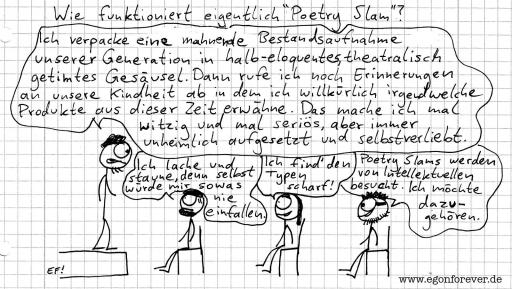 Wie funktioniert eigentlich "Poetry Slam"?
Ich verpacke eine mahnende Bestandsaufnahme
unserer Generation in halb-eloquentes, theatralisch
getimtes Gesäusel. Dann rufe ich noch Erinnerungen
an unsere Kindheit ab in dem ich willkürlich irgendwelche
Produkte aus dieser Zeit erwähne. Das mache ich mal
witzig und mal seriös, aber immer
unheimlich aufgesetzt und selbstverliebt.
Ich lache und
stayne, denn selbst
würde mir sowas
nie
einfallen.
Ich find' den
Typen
scharf!
Poetry Slams werden
von Intellektuellen
besucht. Ich möchte
dazu-
gehören.
EF!
www.egonforever.de